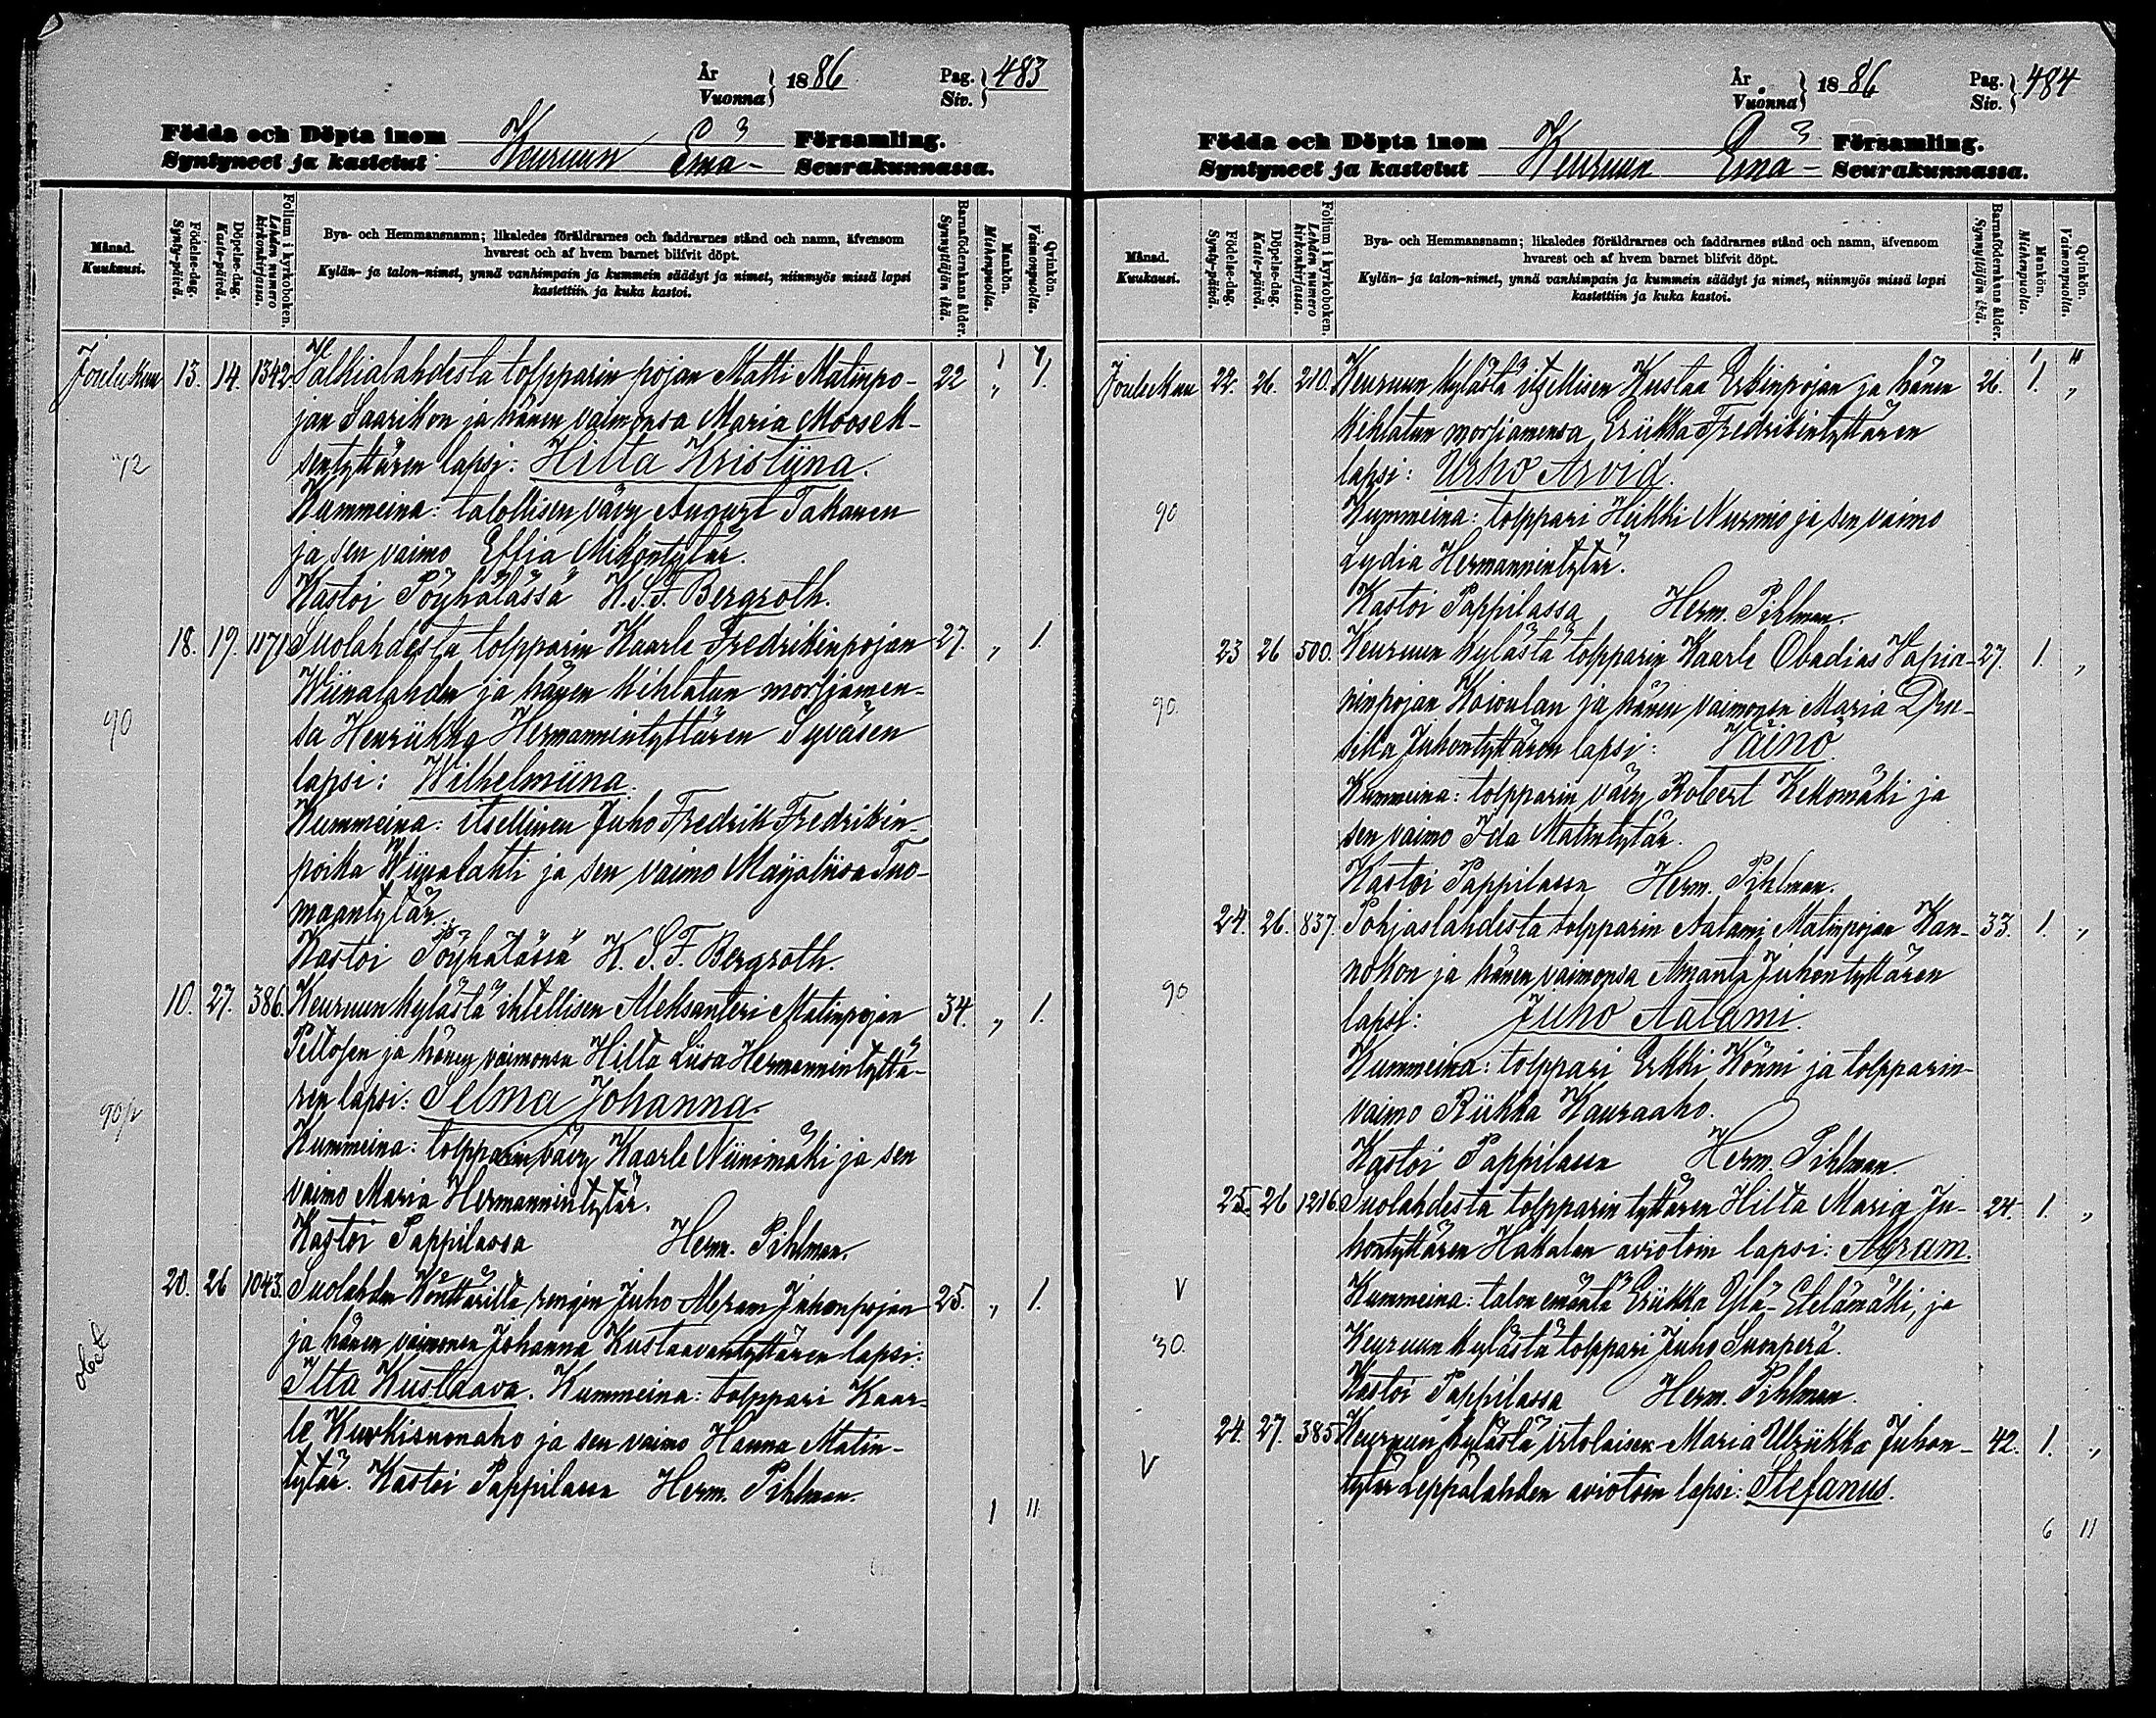 År
Vuonna } 1886 Pag.
Siv. } 483
Födda och Döpta inom Församling.
Syntyneet ja kastetut Keuruun Emä- Seurakunnassa.
Månad.
Kuukausi.
Födelse-dag.
Synty-päivä.
Döpelse-dag.
Kaste-päivä.
Folium i kyrkoboken.
Lehden numero
kirkonkirjassa.
Bya- och Hemmansnamn; likaledes föräldrarnes och faddrarnes stånd och namn, äfvensom
hvarest och af hvem barnet blifvit döpt.
Kylän- ja talon-nimet, ynnä vanhimpain ja kummein säädyt ja nimet, niinmyös missä lapsi
kastettiin ja kuka kastoi.
Barnaföderskans ålder.
Synnyttäjän ikä.
Mankön.
Miehenpuolta.
Qvinkön.
Vaimonpuolta.
Joulukuu 13. 14. 1342. Valkialahdesta tolpparin pojan Matti Matinpo- 22 " 1.
jan Saarikon ja hänen vaimonsa Maria Moosek-
sentyttären lapsi: Hilta Kristiina.
Kummeina: talollisen vävy August Takanen
ja sen vaimo Effia Mikontytär.
Kastoi Pöyhölässä K.S.F. Bergroth.
18. 19. 1171 Suolahdesta tolpparin Kaarle Fredrikinpojan 27. " 1.
Wiinalahden ja hänen kihlatun morsiamen-
sa Henriikka Hermannintyttären Syväsen
90
lapsi: Wilhelmiina.
Kummeina: itsellinen Juho Fredrik Fredrikin-
poika Wiinalahti ja sen vaimo Maijaliisa Tuo-
maantytär.
Kastoi Pöyhölässä K.S.F. Bergroth.
10. 27. 386. Keuruun kylästä ihtellisen Aleksanteri Matinpojan 34. " 1.
Peltosen ja hänen vaimonsa Hilta Liisa Hermannintyttä-
ren lapsi: Selma Johanna.
Kummeina: tolpparin vävy Kaarle Niinimäki ja sen
vaimo Maria Hermannintytär.
Kastoi Pappilassa Herm. Pihlman.
20. 26 1043. Suolahden Konttarilta rengin Juho Abram Juhonpojan 25. " 1.
ja hänen vaimonsa Johanna Kustaavantyttären lapsi:
Ilta Kustaava. Kummeina: tolppari Kaar-
le Kurkisuonaho ja sen vaimo Hanna Matin-
tytär. Kastoi Pappilassa Herm. Pihlman.
1 11
År
Vuonna } 1886 Pag.
Siv. } 484
Födda och Döpta inom Församling.
Syntyneet ja kastetut Keuruun Emä- Seurakunnassa.
Månad.
Kuukausi.
Födelse-dag.
Synty-päivä.
Döpelse-dag.
Kaste-päivä.
Folium i kyrkoboken.
Lehden numero
kirkonkirjassa.
Bya- och Hemmansnamn; likaledes föräldrarnes och faddrarnes stånd och namn, äfvensom
hvarest och af hvem barnet blifvit döpt.
Kylän- ja talon-nimet, ynnä vanhimpain ja kummein säädyt ja nimet, niinmyös missä lapsi
kastettiin ja kuka kastoi.
Barnaföderskans ålder.
Synnyttäjän ikä.
Mankön.
Miehenpuolta.
Qvinkön.
Vaimonpuolta.
Joulukuu 22. 26. 210. Keuruun kylästä itsellisen Kustaa Erkinpojan ja hänen 26. 1. "
kihlatun morsiamensa Eriikka Fredrikintyttären
lapsi: Urho Arvid.
90 Kummeina: tolppari Heikki Nurmio ja sen vaimo
Lydia Hermannintytär.
Kastoi Pappilassa Herm. Pihlman.
23 26 500. Keuruun kylästä tolpparin Kaarle Obadias 27. 1. "
90 ninpojan Koivulan ja hänen vaimonsa Maria Dru-
silla Juhontyttären lapsi: Väinö.
Kummeina: tolpparin vävy Robert Kekomäki ja
sen vaimo Ida Matintytär.
Kastoi Pappilassa Herm. Pihlman.
24. 26. 837. Pohjaslahdesta tolpparin Aatami Matinpojan Kan- 33. 1. "
nokon ja hänen vaimonsa Amanta Juhontyttären
90 lapsi: Juho Aatami.
Kummeina: tolppari Erkki Könni ja tolpparin-
vaimo Riikka Kauraaho.
Kastoi Pappilassa Herm. Pihlman.
25. 26 1216. Suolahdesta tolpparin tyttären Hilta Maria Ju- 24. 1. "
hontyttären Hakalan aviotoin lapsi: Abram.
V Kummeina: talon emäntä Eriikka Ylä-Etelämäki, ja
30. Keuruun kylästä tolppari Juho Suonperä.
Kastoi Pappilassa Herm. Pihlman.
24. 27. 385 Keuruun kylästä irtolaisen Maria Ulriikka Juhon- 42. 1. "
V tytär Leppälahden aviotoin lapsi: Stefanus.
6 11